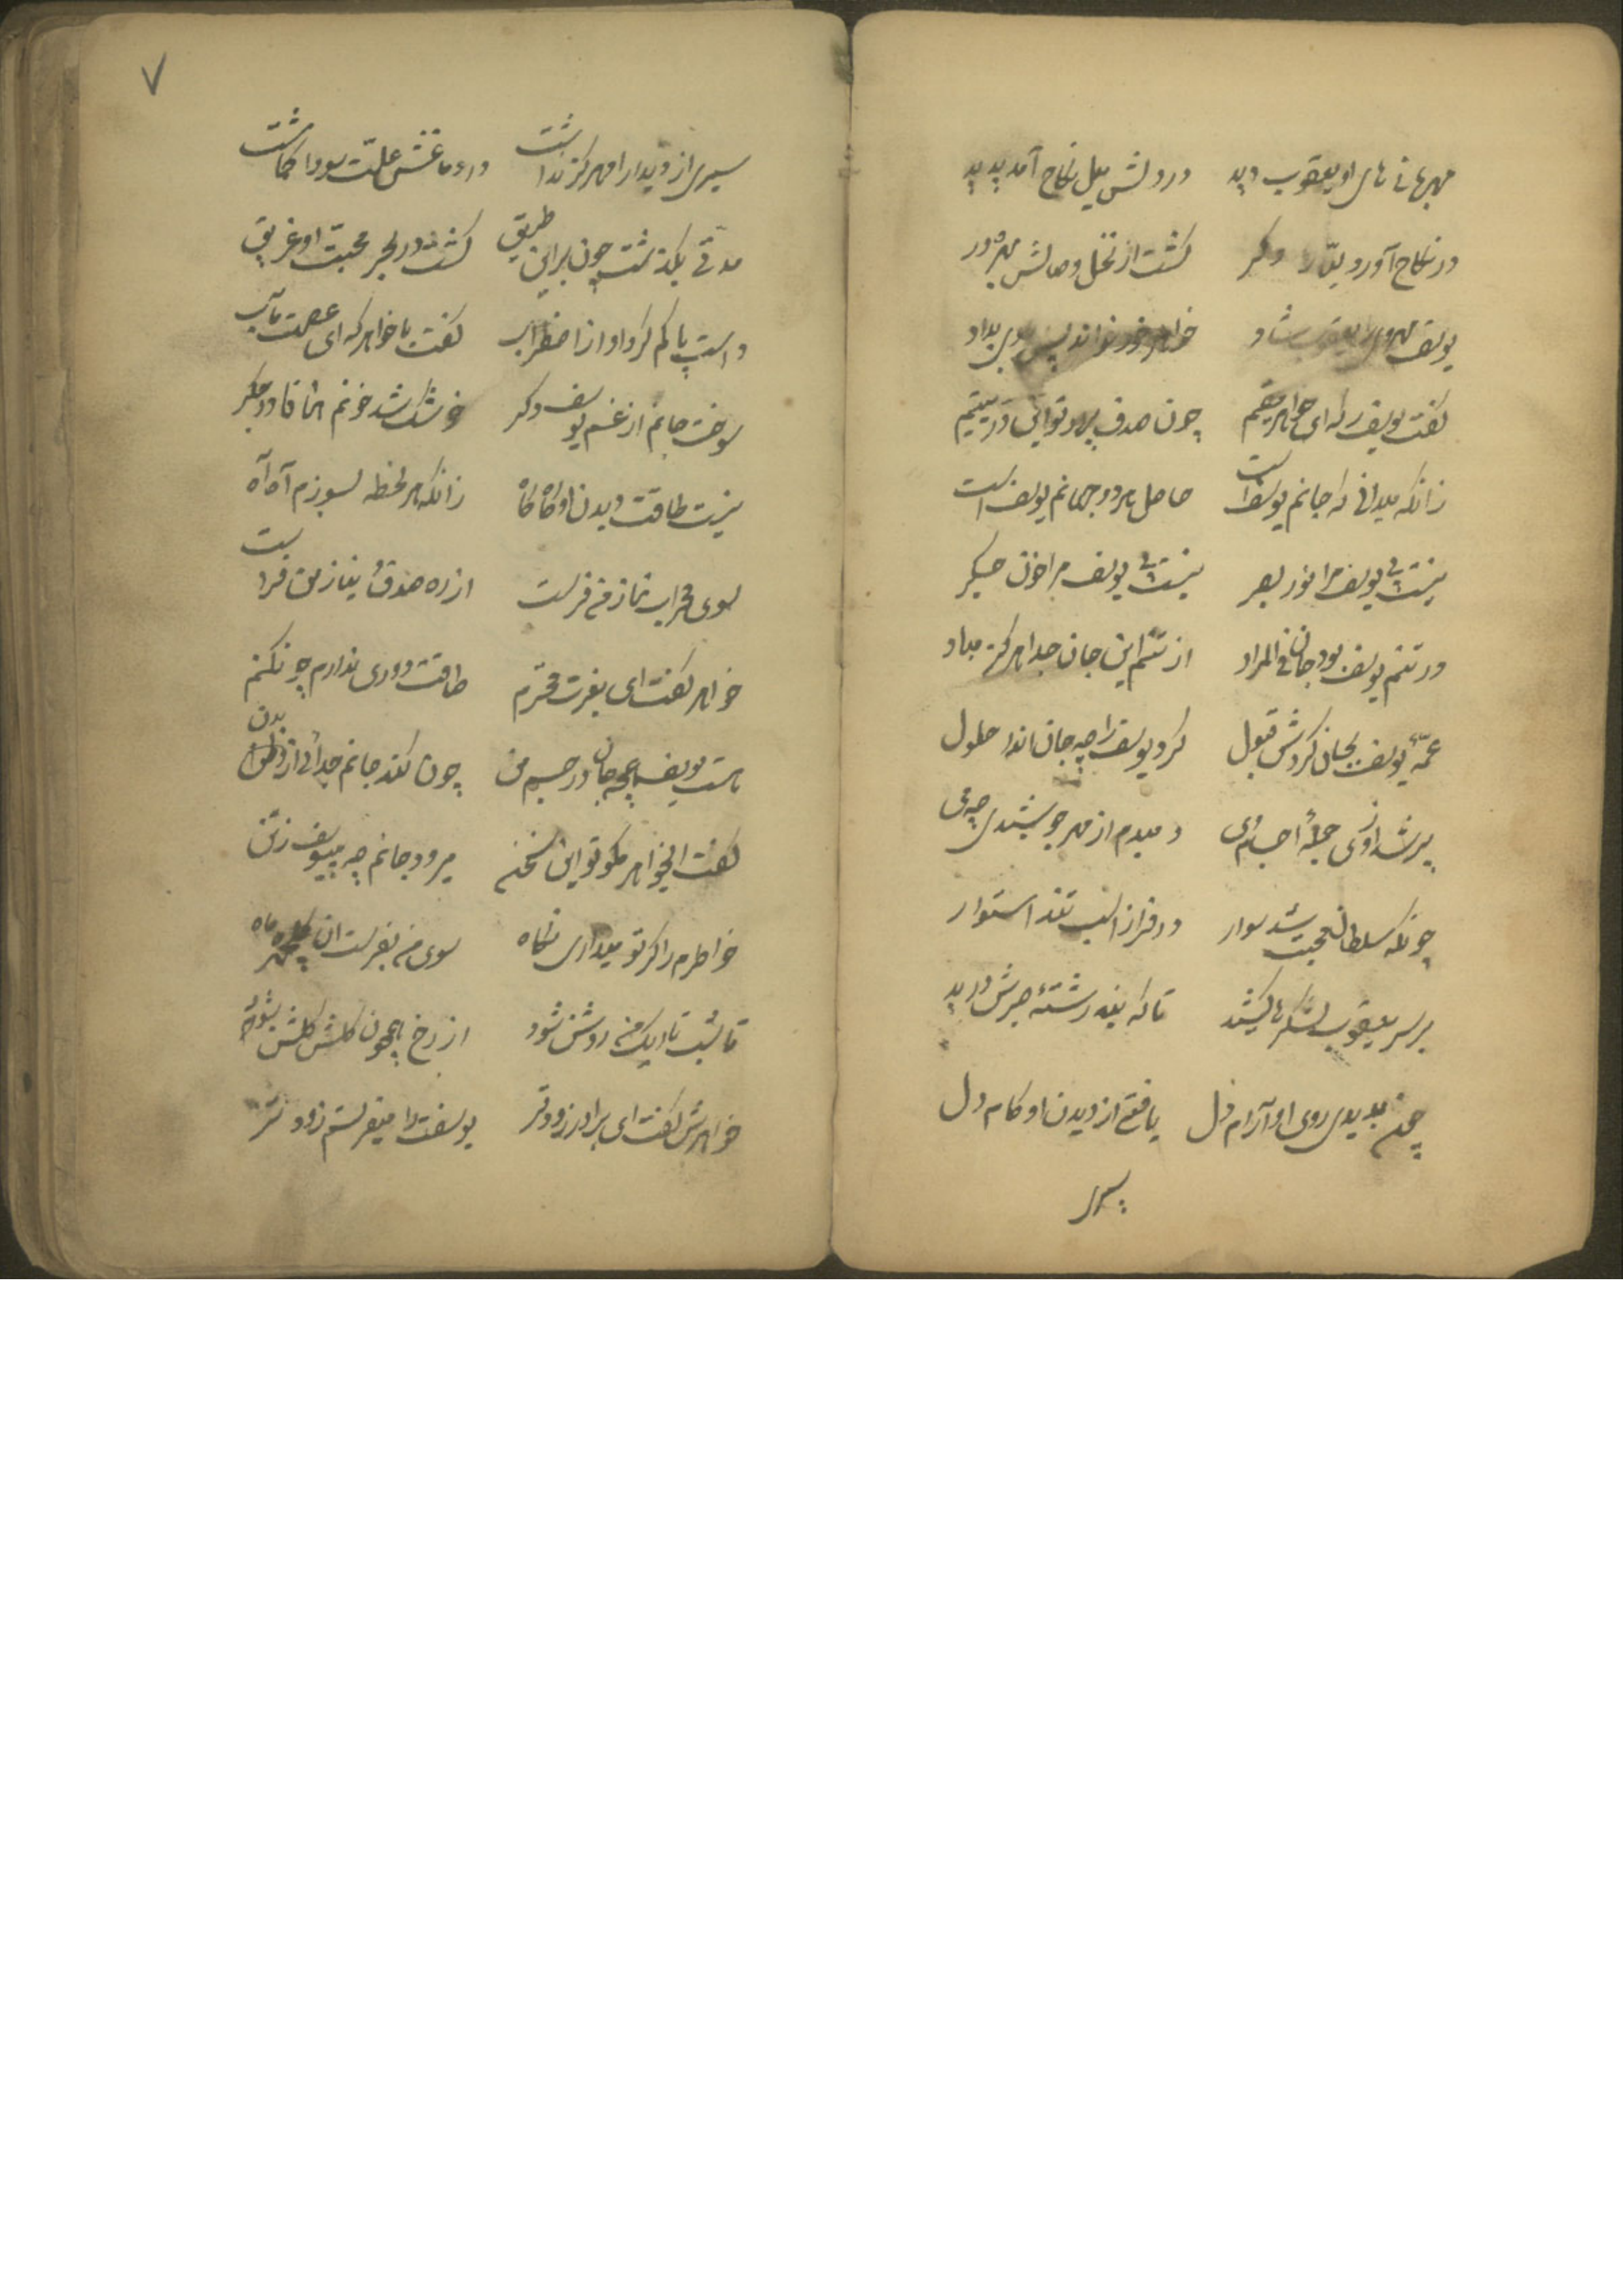 مهربانیهای او یعقوب دید در دلش میل نکاح آمد پدید
در نکاح آورد دگر گشت از نخل وصالش بهره‌ور
یوسف داد
گفت یوسف را که ای خواهر مقیم چون صدف پرور تو این در یتیم
زانکه میدانی که جانم یوسف است حاصل هر دو جهانم یوسف است
نیست بی یوسف مرا نور بصر نیست بی یوسف مرا خون جگر
در تنم یوسف بود جان فی المراد از تنم این جان جدا هرگز مباد
عمّهٔ یوسف بجان کردش قبول کرد یوسف را چه جان اندا حلول
پر شد از وی جملهٔ اجسام وی دمبدم از مهر جوشیدی چه می
چونکه سلطان محبت شد سوار در فراز اسب تند استوار
بر سر یعقوب لشکرها کشید تا که بند رشتهٔ صبرش درید
چون بدیدی روی او آرام دل یافتی از دیدن او کام دل
سیری
۷
سیری از دیدار او هرگز نداشت در دماغش علّت سودا گماشت
مدتی بگذشت چون بر این طریق گشت در بحر محبت او غریق
دست پا گم کرد او از اضطراب گفت با خواهر که ای عصمت مآب
سوخت جانم از غم یوسف دگر خوشک شد خونم در جگر
نیست طاقت دیدن او گاه گاه زانکه هر لحظه بسوزم آه آه
سوی محراب نماز من فرست از ره صدق نیاز من فرست
خواهر گفت ای بغیرت محترم طاقت دوری ندارم چون کنم
هست یوسف همچه جان در جسم من چون کند جانم جدائی از بدن
گفت ایخواهر مگو تو این سخن میرود جانم چه بییوسف ز تن
خاطرم را گر تو میداری نگاه سوی من بفرست آن ماه
تا شب تاریک من روشن شود از رخ همچون گلش گلشن شود
خواهرش گفت ای برادر زودتر یوسفت را میفرستم زودتر